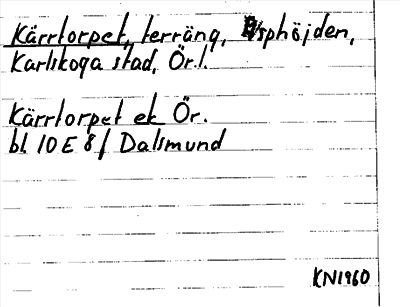 Kärrtorpet, terräng, Asphöjden,
Karlskoga stad, Ör.l.
Kärrtorpet ek Ör.
bl. 10 E 8 f Dalsmund
KN1960